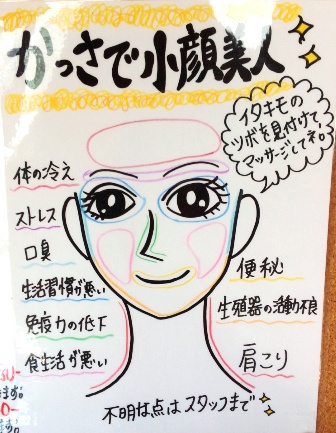 かっさで小顔美人
イタキモの
ツボを見付けて
マッサージしてネ。
体の冷え
ストレス
口臭
生活習慣が悪い
免疫力の低下
食生活が悪い
便秘
生殖器の活動不良
肩こり
不明な点はスタッフまで